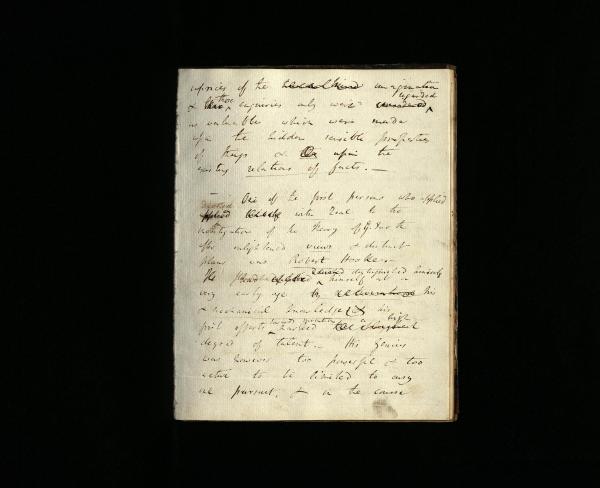 of the imagination
& those enquiries only were regarded
as valuable which were made
upon the hidden sensible properties
of things & upon the
existing relations of facts. —
— One of the first persons who applied
with zeal to the
investigation of the theory of the Earth
after enlightened views & distinct
plans was Robert Hooke. —
He distinguished himself at a
very early age his
& mechanical knowledge & his
first efforts towards a high
degree of talent. — His Genius
was however too powerful & too
active to be limited to any
one pursuit, & in the course